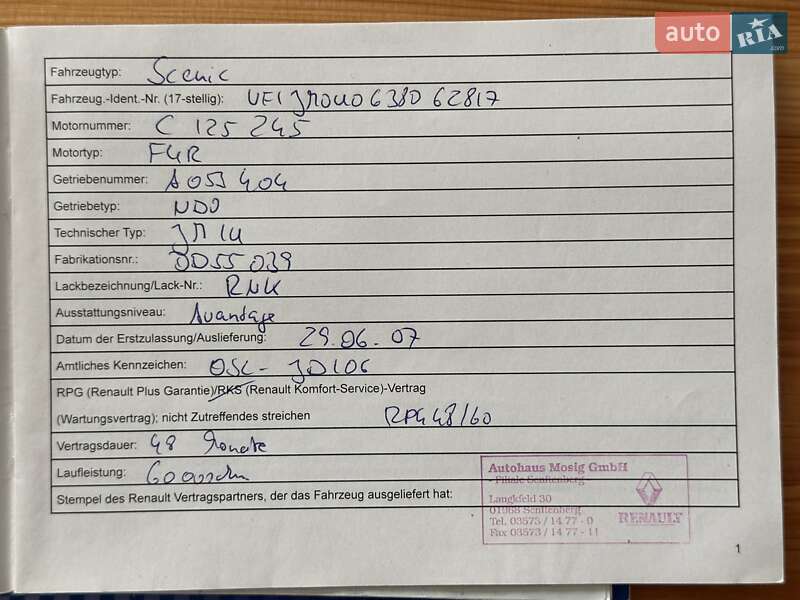 auto RIA.com
Fahrzeugtyp: Scenic
Fahrzeug.-Ident.-Nr. (17-stellig): VF1JM0U0638062817
Motornummer: C 125 245
Motortyp: F4R
Getriebenummer: A053404
Getriebetyp: ND0
Technischer Typ: JM1U
Fabrikationsnr.: DD55039
Lackbezeichnung/Lack-Nr.: RNK
Ausstattungsniveau: Avantage
Datum der Erstzulassung/Auslieferung: 29.06.07
Amtliches Kennzeichen: OSL-JD106
RPG (Renault Plus Garantie)/RKS (Renault Komfort-Service)-Vertrag
(Wartungsvertrag); nicht Zutreffendes streichen RPG48/60
Vertragsdauer: 48 Monate
Laufleistung:
Stempel des Renault Vertragspartners, der das Fahrzeug ausgeliefert hat:
Autohaus Mosig GmbH
- Filiale Senftenberg
Laugkfeld 30
01968 Senftenberg
Tel. 03573 / 14 77 - 0
Fax 03573 / 14 77 - 11
RENAULT
1